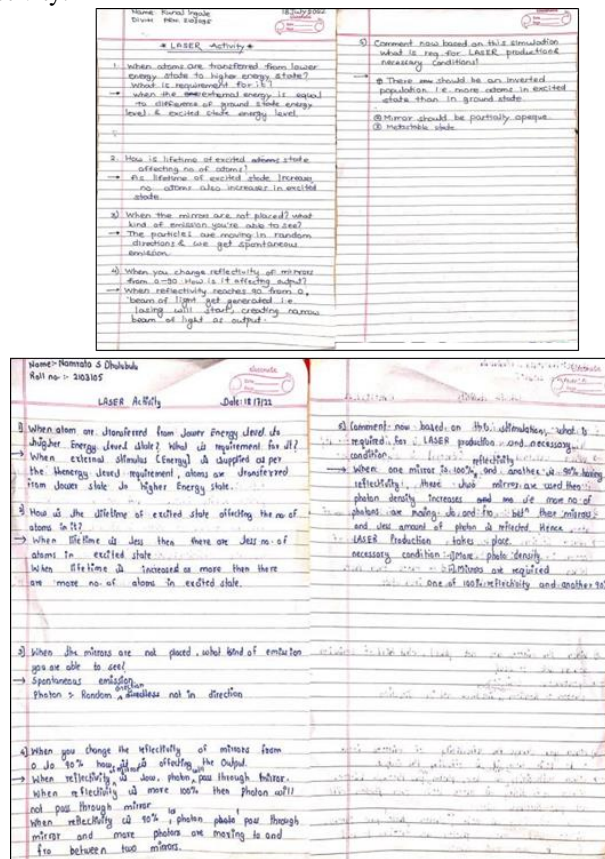 Name: Kunal Ingale
18 July 2022
classmate
* LASER Activity *
1. When atoms are transferred from lower
energy state to higher energy state?
What is requirement for it?
→ When the external energy is equal
to difference of ground state energy
level & excited state energy level.
2. How is lifetime of excited state
affecting no of atoms?
→ As lifetime of excited state increases
no atoms also increases in excited
state.
3) When the mirrors are not placed? what
kind of emission you're able to see?
→ The particles are moving in random
directions & we get spontaneous
emission.
4) When you change reflectivity of mirrors
from 0-90 How is it affecting output?
→ When reflectivity reaches 90 from 0,
beam of light get generated i.e.
lasing will start, creating narrow
beam of light as output.
classmate
5) Comment now based on this simulation
what is req. for LASER production &
necessary conditions!
→ There should be an inverted
population i.e. more atoms in excited
state than in ground state.
② Mirror should be partially opaque.
③ Metastable state
Name:- Namrata S
Roll no :- 2103105
classmate
LASER Activity
Date: 18/7/22
1) When atom are transferred from lower Energy level to
higher Energy level state? What is requirement for it?
→ When external stimulus (Energy) is supplied as per
the energy level requirement, atoms are transferred
from lower state to higher Energy state.
How is the lifetime of excited state affecting the no of
atoms in it?
→ When lifetime is less then there are less no. of
atoms in excited state
When lifetime is increased or more then there
are more no. of atoms in excited state.
3) When the mirrors are not placed, what kind of emission
you are able to see?
→ Spontaneous emission
Photon :- Random direction not in direction
4) When you change the reflectivity of mirrors from
0 to 90% how it is affecting the Output.
→ When reflectivity is low, photon pass through mirror.
When reflectivity is more 100% then photon will
not pass through mirror
When reflectivity is 90%, photon pass through
mirror and more photons are moving to and
fro between two mirrors.
classmate
5) Comment now based on this stimulation, what is
required for LASER production and necessary
condition.
→ When one mirror is 100% and another is 90% having
reflectivity, these two mirror are used then
photon density increases and more no of
photons are moving to and fro betn these mirrors
and less amount of photon is reflected. Hence
LASER Production takes place.
necessary condition :- More photo density
Mirrors are required
one of 100% reflectivity and another 90%